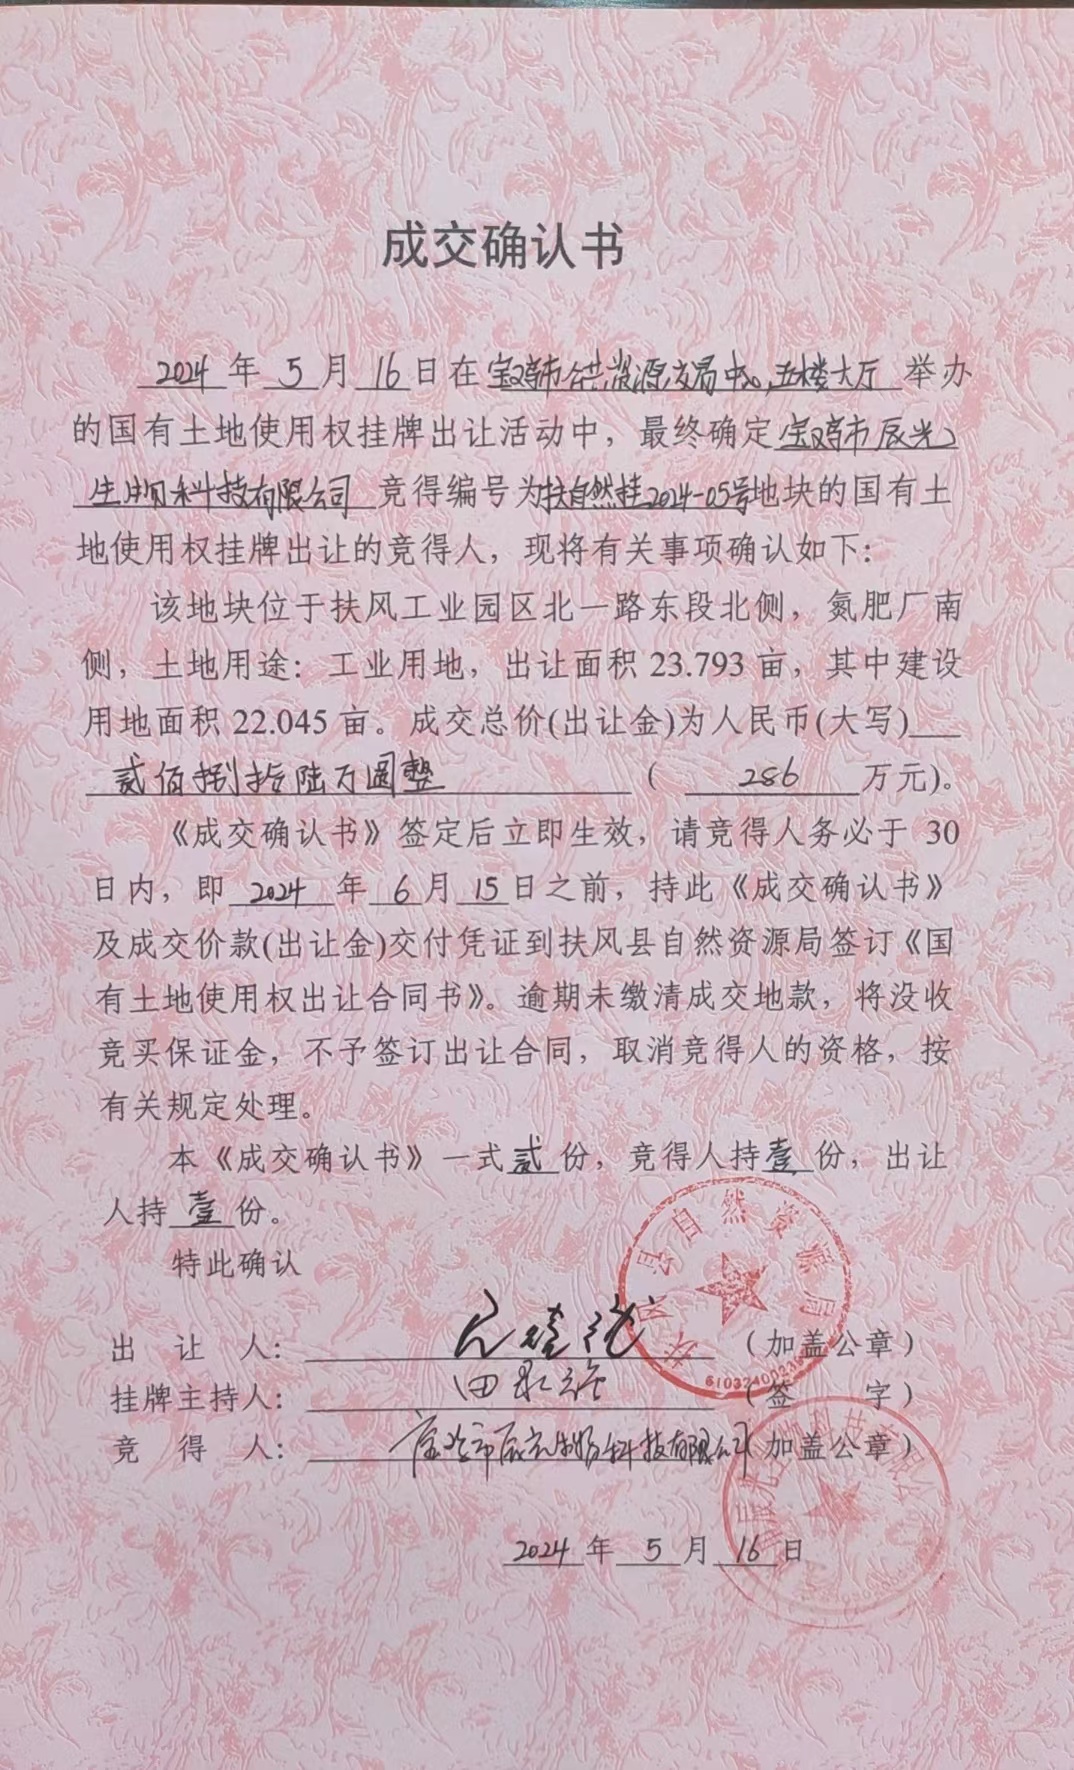 成交确认书
2024年5月16日在宝鸡市公共资源交易中心五楼大厅举办
的国有土地使用权挂牌出让活动中，最终确定宝鸡市辰光
生物科技有限公司竞得编号为扶自然挂2024-05号地块的国有土
地使用权挂牌出让的竞得人，现将有关事项确认如下：
该地块位于扶风工业园区北一路东段北侧，氮肥厂南
侧，土地用途：工业用地，出让面积 23.793 亩，其中建设
用地面积 22.045 亩。成交总价(出让金)为人民币(大写)
贰佰捌拾陆万圆整(286万元)。
《成交确认书》签定后立即生效，请竞得人务必于 30
日内，即2024年6月15日之前，持此《成交确认书》
及成交价款(出让金)交付凭证到扶风县自然资源局签订《国
有土地使用权出让合同书》。逾期未缴清成交地款，将没收
竞买保证金，不予签订出让合同，取消竞得人的资格，按
有关规定处理。
本《成交确认书》一式贰份，竞得人持壹份，出让
人持壹份。
特此确认
扶风县自然资源局
出让人：（加盖公章）
挂牌主持人：（签字）
竞得人：宝鸡市辰光生物科技有限公司（加盖公章）
2024年5月16日